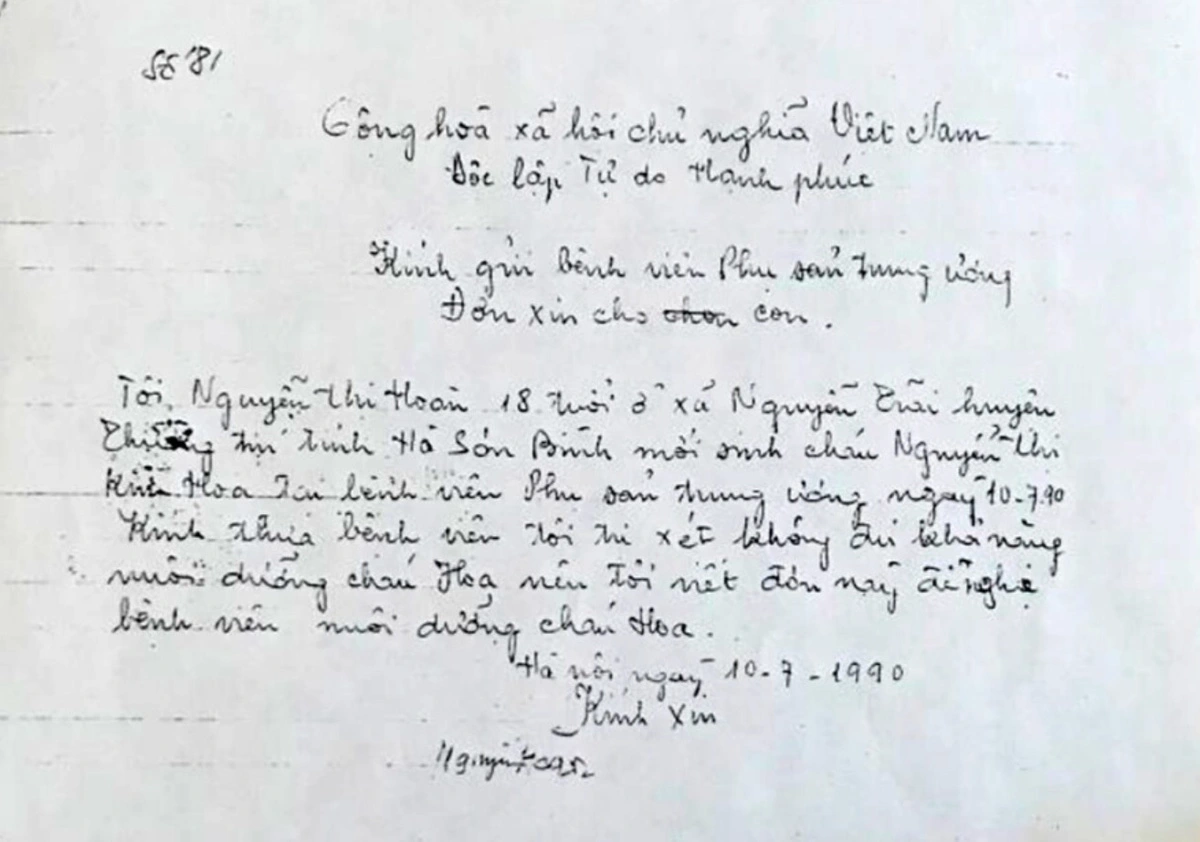 Số 81
Cộng hoà xã hội chủ nghĩa Việt Nam
Độc lập Tự do Hạnh phúc
Kính gửi bệnh viện Phụ sản trung ương
Đơn xin cho con.
Tôi, Nguyễn Thị Hoan 18 tuổi ở xã Nguyễn Trãi huyện
Thường tín tỉnh Hà Sơn Bình mới sinh cháu Nguyễn Thị
Hoa tại bệnh viện Phụ sản trung ương ngay 10-7.90
Kính thưa bệnh viện tôi tự xét không đủ khả năng
nuôi dưỡng cháu Hoa nên tôi viết đơn này đề nghị
bệnh viện nuôi dưỡng cháu Hoa.
Hà nội ngay 10-7-1990
Kính xin